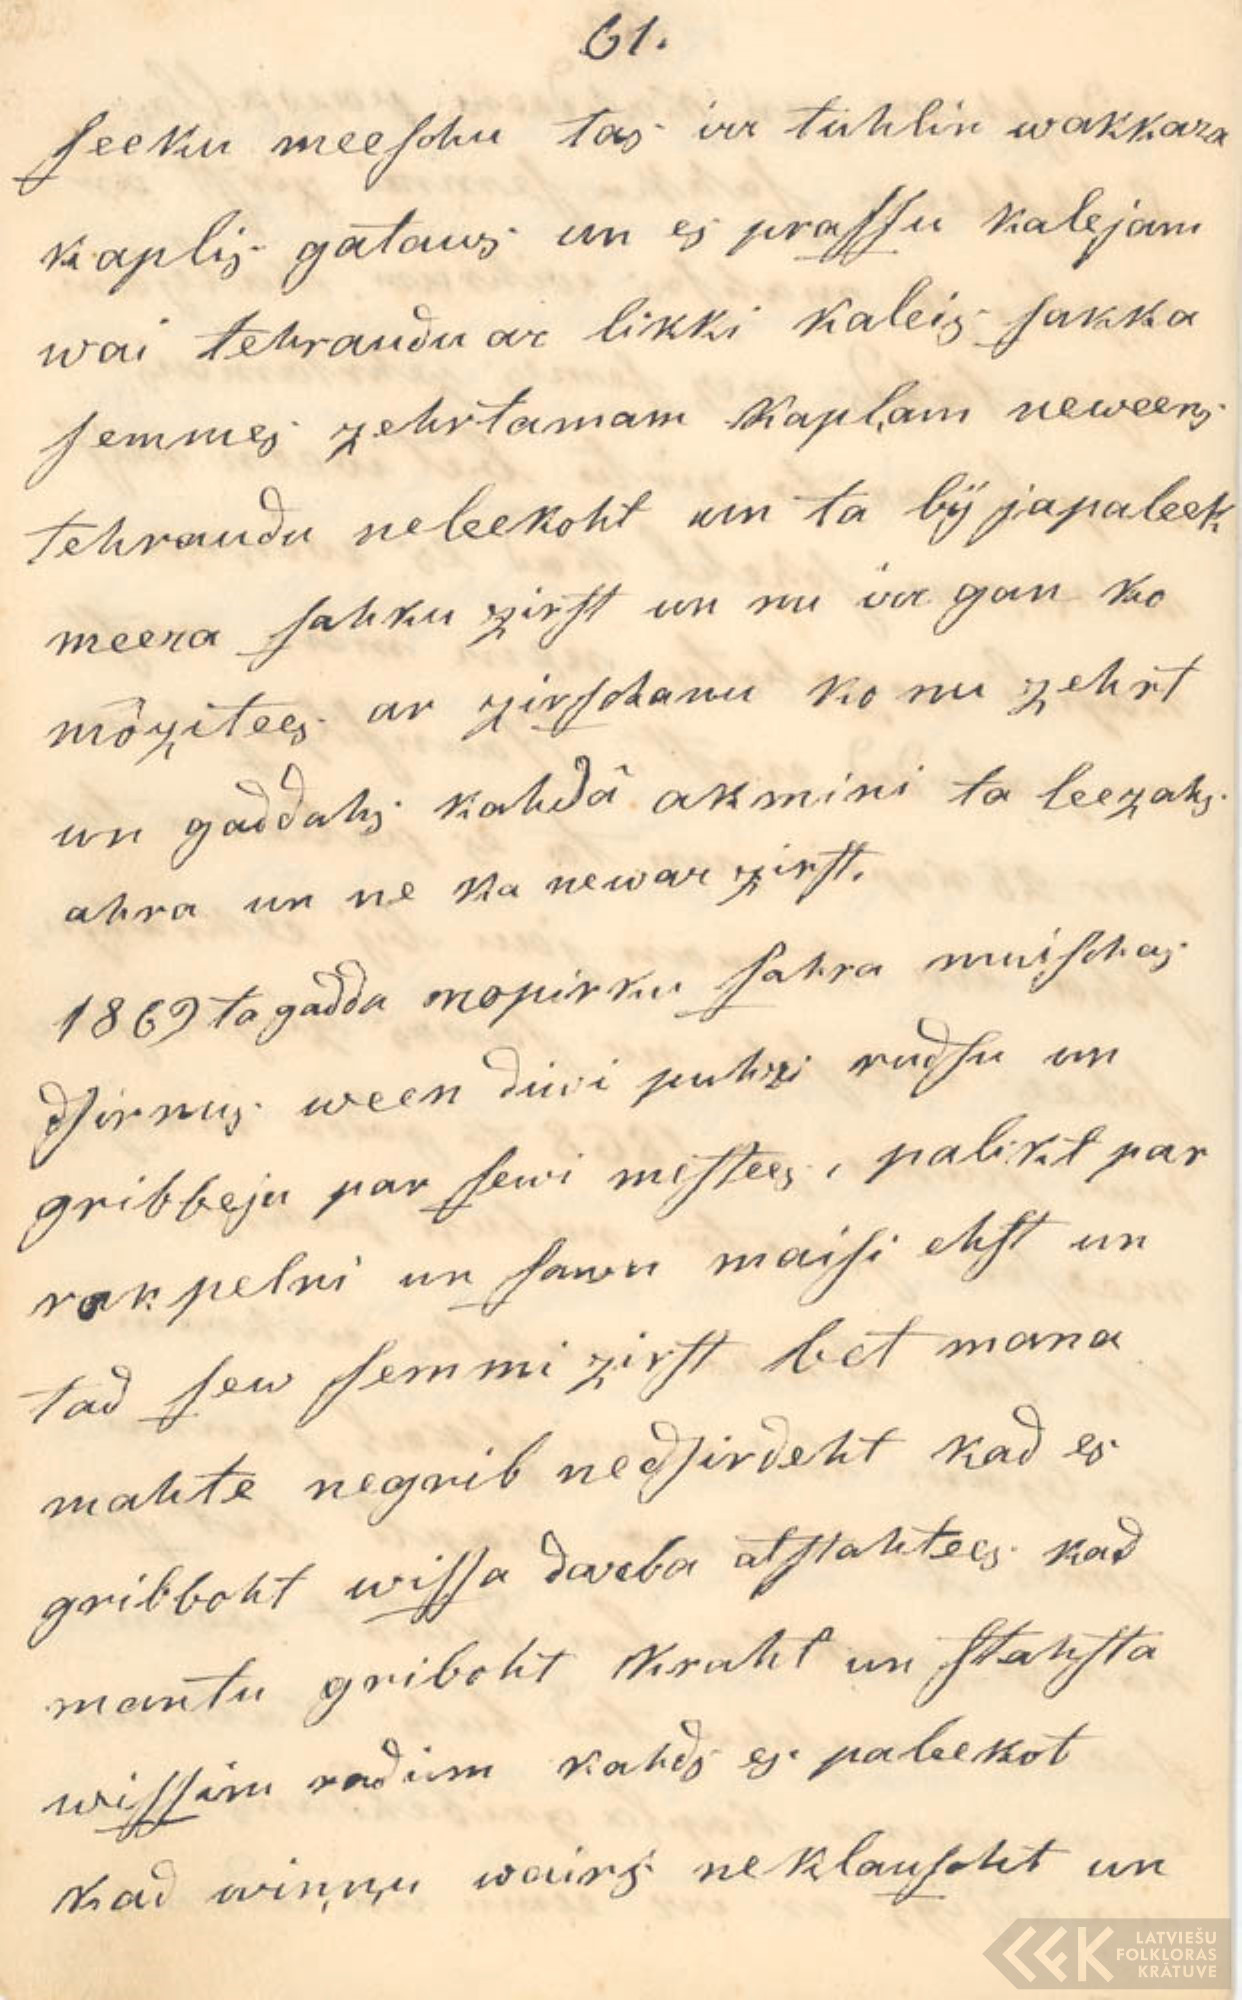 61.
ſeeku meeſchu tas irr tuhlin wakkara
kaplis gataws un es praſſu kalejam
wai tehraudu ar likki kaleis ſakka
ſemmes zehrtamam kapļam neweens
tehraudu neleekoht un ta bÿ japaleek
meera ſahku zirſt un nu irr gan ko
mōzitees ar zirſchanu ko nu zehrt
un gaddahs kahdâ akmini ta leezahs
ahra un ne ka newar zirſt.
1869 ta gadda nopirku ſahra muiſchas
dſirnus ween diwi puhri rudſu un
gribbeju par ſewi meſtees, palikt par
rokpelni un ſawu maiſi ehſt un
tad ſew ſemmi zirſt bet mana
mahte negrib nedſirdeht kad es
gribboht wiſſa darba atſtahtees kad
mantu griboht kraht un ſtahſta
wiſſim radim kahds es paleekot
kad wiņņu wairs neklauſoht un
LATVIEŠU
FOLKLORAS
KRĀTUVE